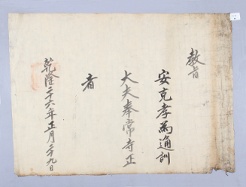 敎旨
安克孝爲通訓
大夫奉常寺正
者
乾隆二十六年正月二十九日